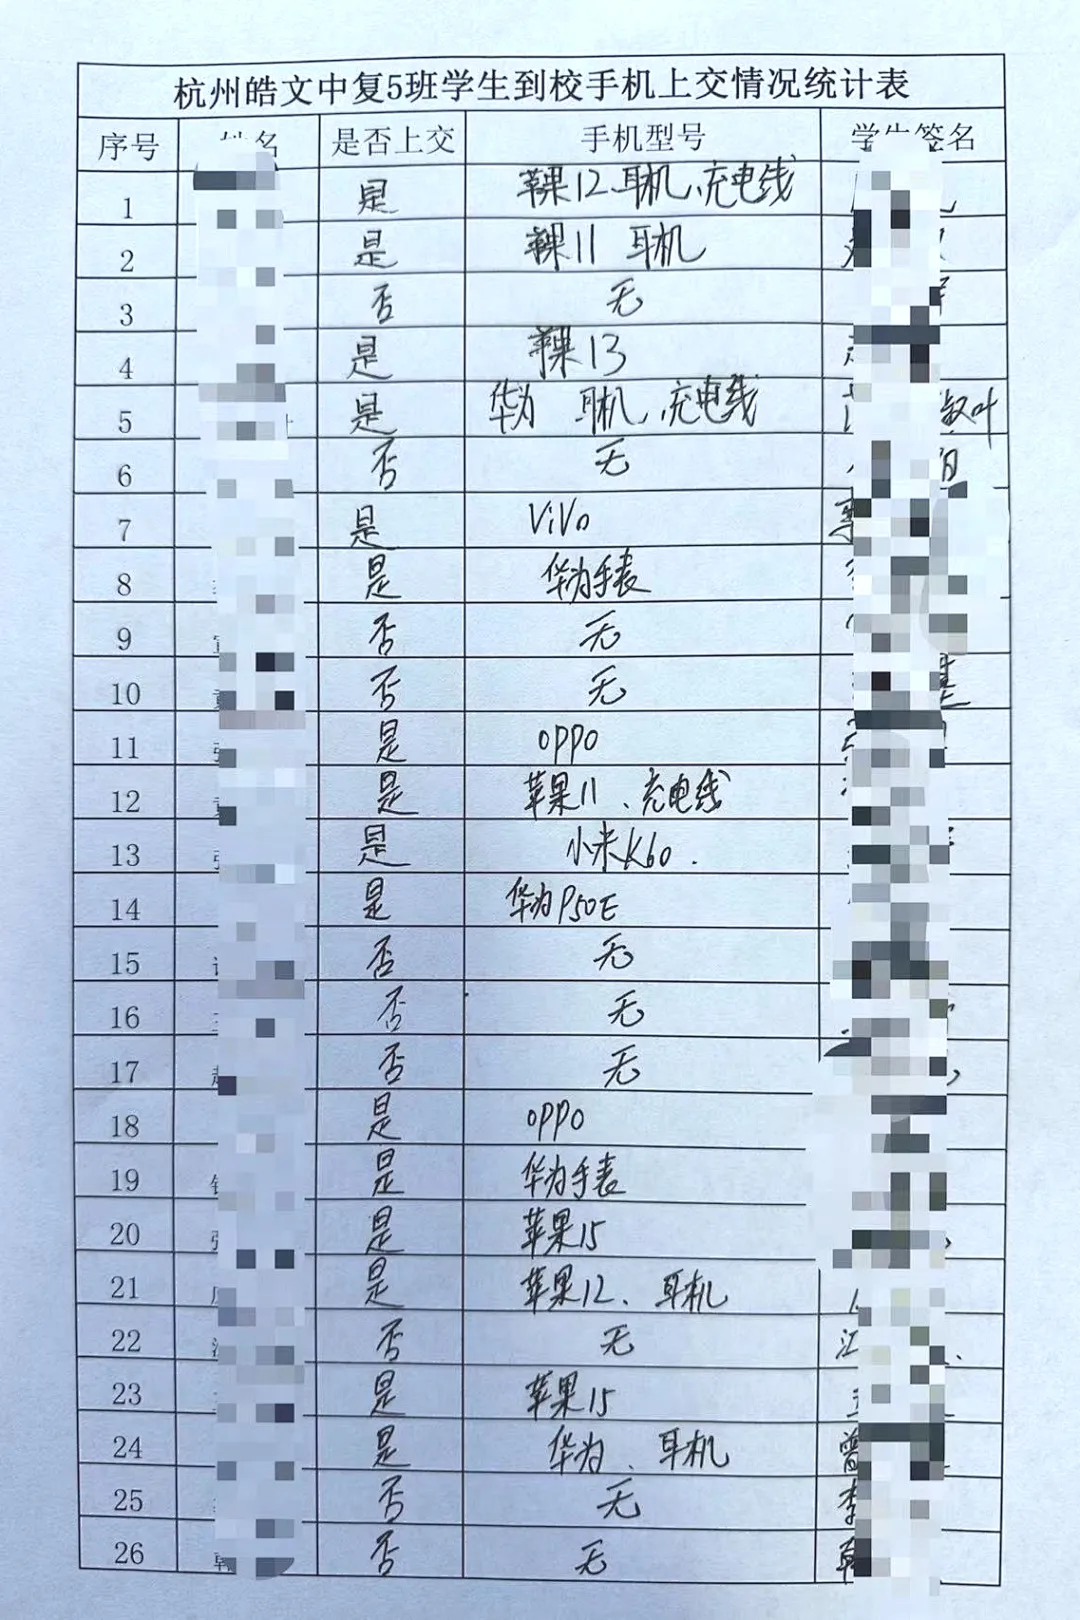 杭州皓文中复5班学生到校手机上交情况统计表
序号 姓名 是否上交 手机型号 学生签名
1 是 苹果12、耳机、充电线
2 是 苹果11 耳机
3 否 无
4 是 苹果13
5 是 华为 耳机、充电线
6 否 无
7 是 ViVo
8 是 华为手表
9 否 无
10 否 无
11 是 OPPO
12 是 苹果11、充电线
13 是 小米K60.
14 是 华为P50E
15 否 无
16 否 无
17 否 无
18 是 OPPO
19 是 华为手表
20 是 苹果15
21 是 苹果12、耳机
22 否 无 江
23 是 苹果15
24 是 华为、耳机 曾
25 否 无 李
26 否 无